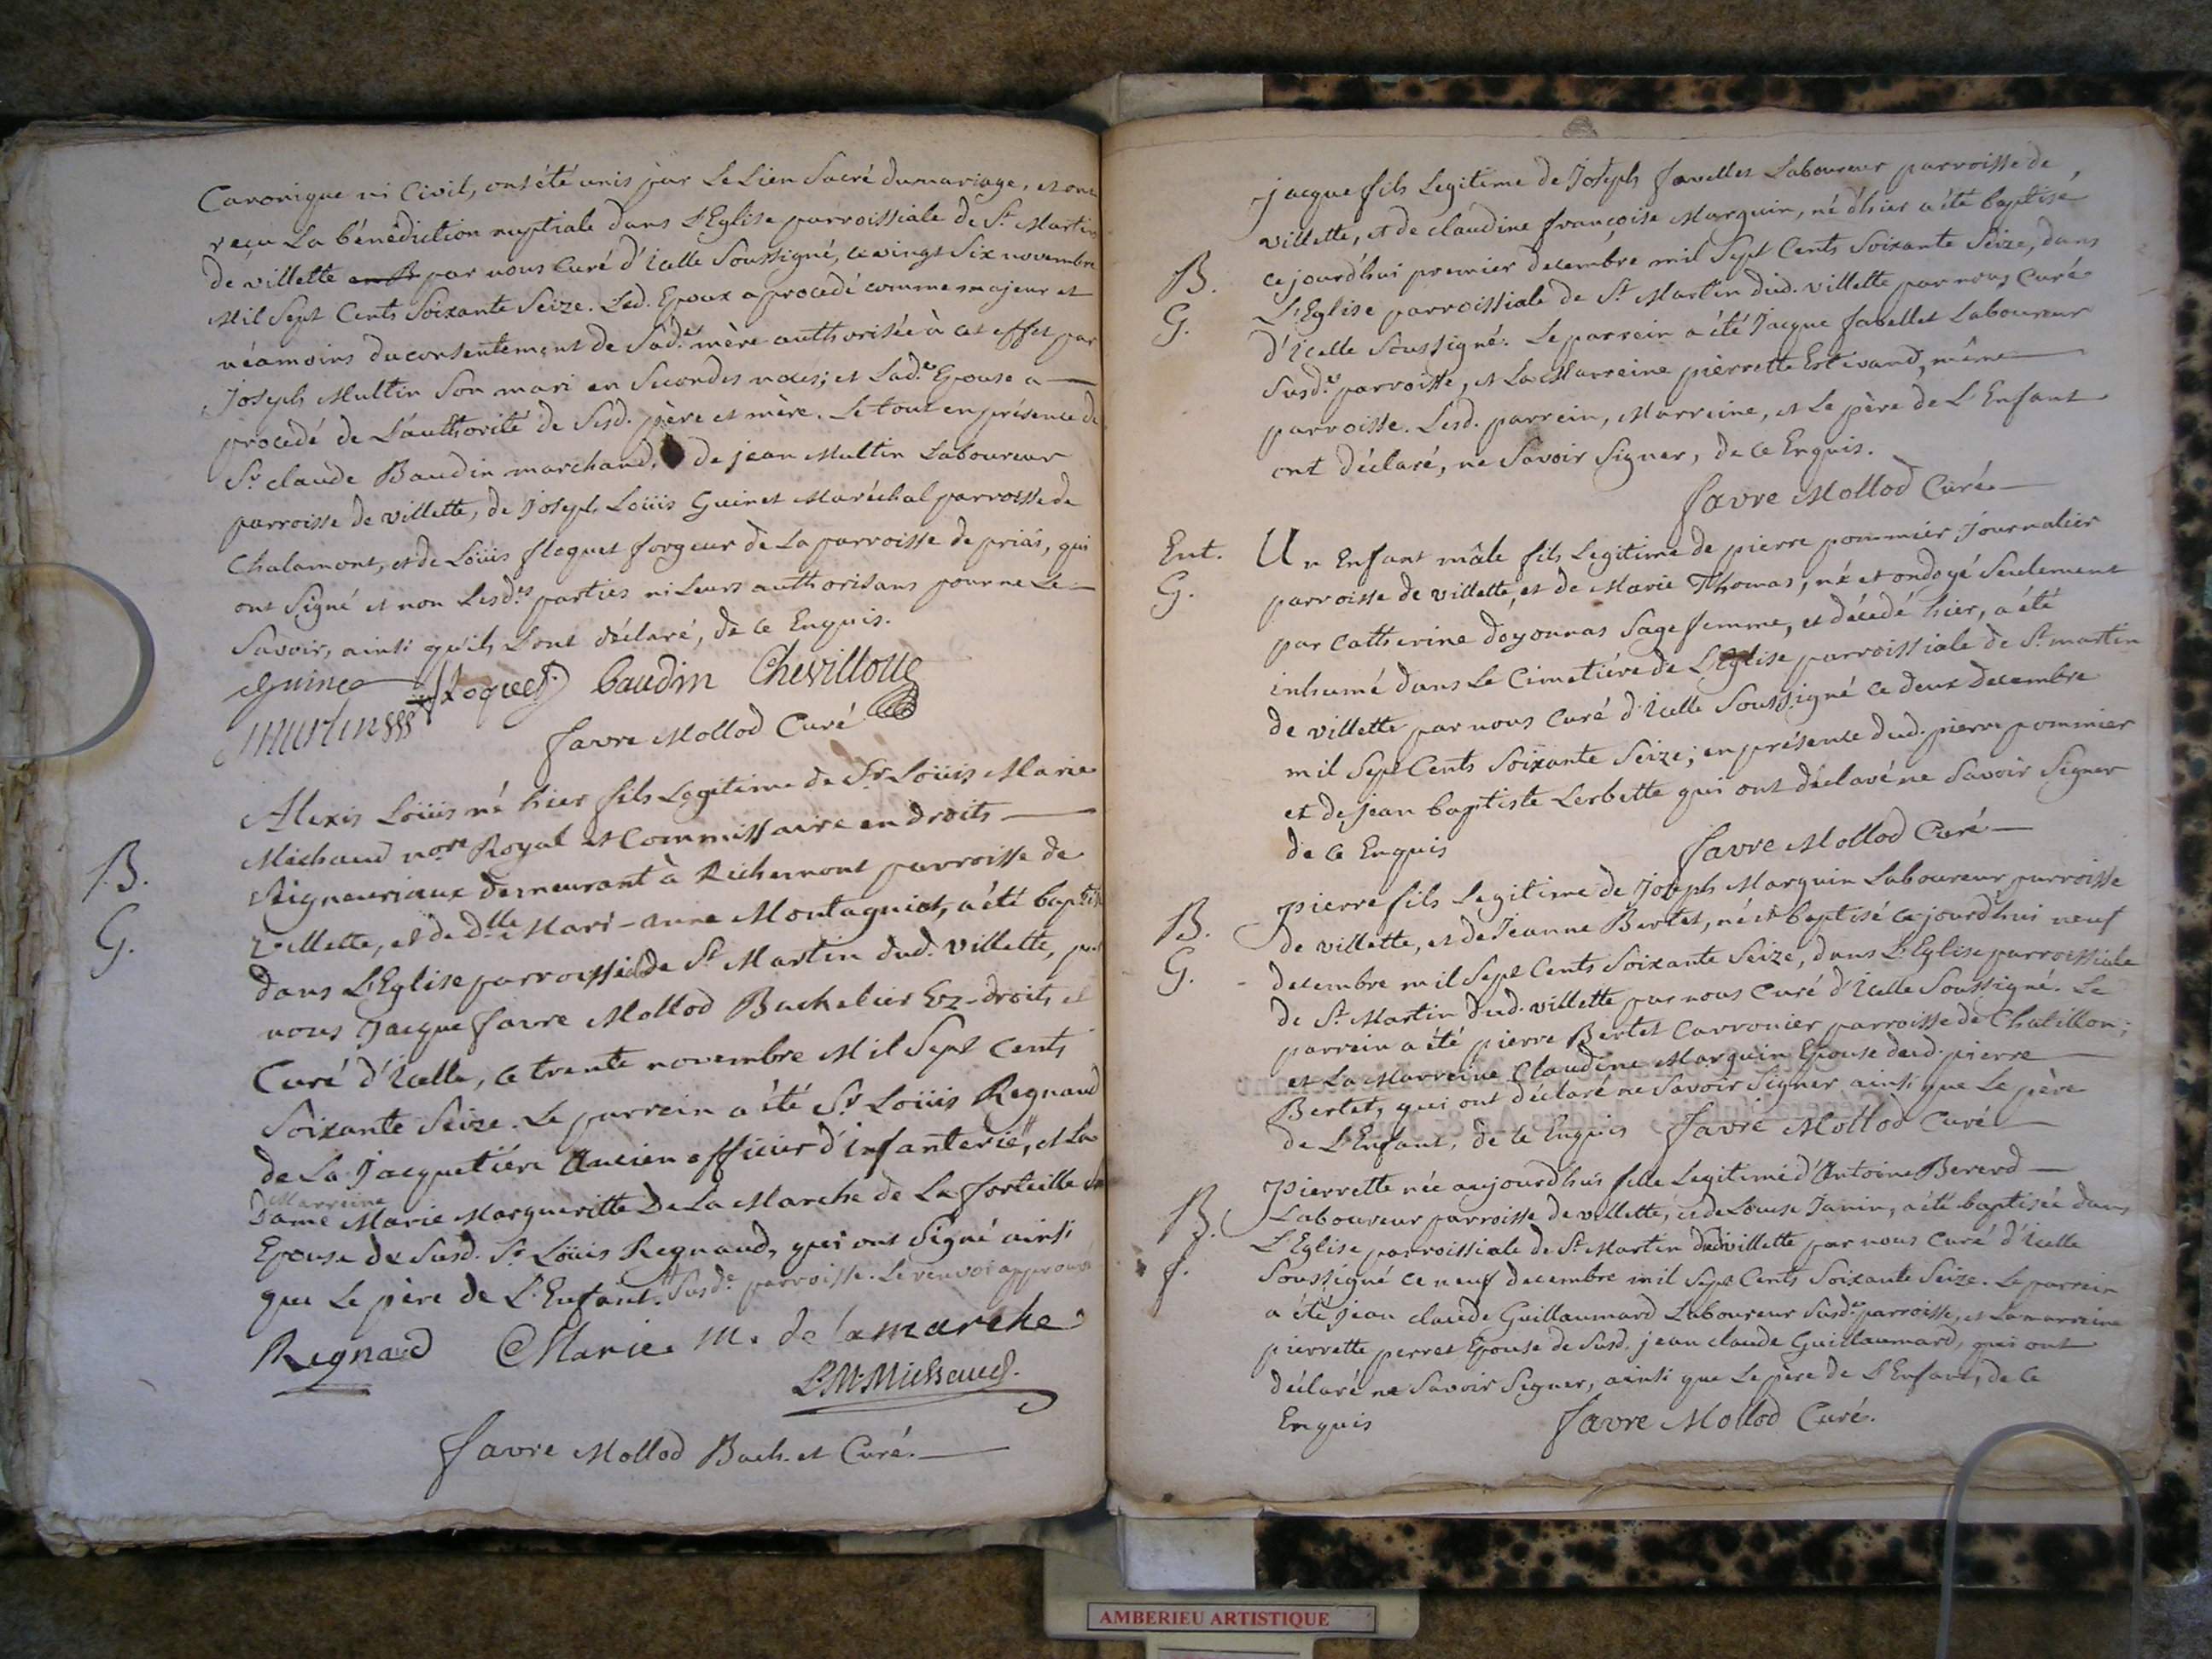 Canonique ni Civil, ont été unis par Le Lien Sacré du mariage, et ont
reçu La bénédiction nuptiale dans L'Eglise parroissiale de St. Martin
de villette par nous Curé d'Icelle Soussigné, ce vingt Six novembre
Mil Sept Cents Soixante Seize. Led. Epoux a procedé comme majeur et
néamoins du consentement de Sad.e mère authorisée à cet effet par
Joseph Multin Son mari en Secondes noces; et Lad.e Epouse a
procedé de L'authorité de Sesd. père et mère. Le tout en présence de
Sr. claude Baudin marchand, de jean Multin Laboureur
parroisse de villette, de Joseph Loüis Guinet Maréchal parroisse de
Chalamont, et de Loüis floquet forgeur de La parroisse de priáy, qui
ont Signé et non Lesd.es parties ni Leurs authorisans pour ne Le
Savoir, ainsi qu'ils L'ont déclaré, de ce Enquis.
Guinet floquet baudin Chevillotte
murtin
favre Mollod Curé
Alexis Loüis né hier fils Legitime de Sr. Loüis Marie
Michaud no.re Royal et Commissaire en droits
B. Seigneuriaux demeurant à Richemont parroisse de
Villette, et de dlle Mari-anne Montagniot, a été baptisé
G. dans L'Eglise parroissiale de St. Martin dud. Villette, par
nous Jacque favre Mollod Bachelier Ez-droits et
Curé d'Icelle, ce trente novembre Mil Sept Cents
Soixante Seize. Le parrein a été Sr. Loüis Regnaud
de La Jacquetiére Ancien officier d'infanterie, et La
Marreine
Dame Marie Margueritte De La Marche de La forteille
Epouse de Susd. Sr. Loüis Regnaud, qui ont Signé ainsi
que Le père de L'Enfant. Susd.e parroisse. Le renvoi approuvé
Regnaud Marie m. de lamarche
L.M. Michaud.
favre Mollod Bach. et Curé.
Jacque fils Legitime de Joseph favellet Laboureur parroisse de
villette, et de claudine françoise Marguin, né d'hier a été baptisé
B. ce jourd'hui premier decembre mil Sept Cents Soixante Seize, dans
L'Eglise parroissiale de St. Martin dud. villette par nous Curé
G. d'Icelle Soussigné. Le parrein a été Jacque favellet Laboureur
Susd.e parroisse, et La Marreine pierrette Estevand, même
parroisse. Lesd. parrein, Marreine, et Le père de L'Enfant
ont déclaré, ne Savoir Signer, de ce Enquis.
favre Mollod Curé
Ent. Un Enfant mâle fils Legitime de pierre pommier Journalier
G. parroisse de villette, et de Marie Thomas, né et ondoyé Seulement
par catherine doyonnas Sage femme, et décédé hier, a été
inhumé dans Le Cimetiére de L'Eglise parroissiale de St. martin
de villette par nous Curé d'Icelle Soussigné ce deux decembre
mil Sept Cents Soixante Seize; en présence dud. pierre pommier
et de jean baptiste Lerbette qui ont déclaré ne Savoir Signer
de ce Enquis favre Mollod Curé
Pierre fils Legitime de Joseph Marguin Laboureur parroisse
B. de villette, et de Jeanne Bertet, né et baptisé ce jourd'hui neuf
G. decembre mil Sept Cents Soixante Seize, dans L'Eglise parroissiale
de St. Martin dud. villette par nous Curé d'Icelle Soussigné. Le
parrein a été pierre Bertet Carronier parroisse de Chatillon;
et La Marreine Claudine Marguin Epouse dud. pierre
Bertet, qui ont déclaré ne Savoir Signer ainsi que Le père
de L'Enfant, de ce Enquis favre Mollod Curé
Pierrette née aujourd'hui fille Legitime d'Antoine Bererd
B. Laboureur parroisse de villette, et de Louise Janin, a été baptisée dans
L'Eglise parroissiale de St. Martin dud. villette par nous Curé d'Icelle
f. Soussigné ce neuf decembre mil Sept Cents Soixante Seize. Le parrein
a été jean claude Guillaumard Laboureur Susd.e parroisse, et La marreine
pierrette perret Epouse de Susd. jean claude Guillaumard, qui ont
déclaré ne Savoir Signer, ainsi que Le père de L'Enfant, de ce
Enquis favre Mollod Curé.
AMBERIEU ARTISTIQUE